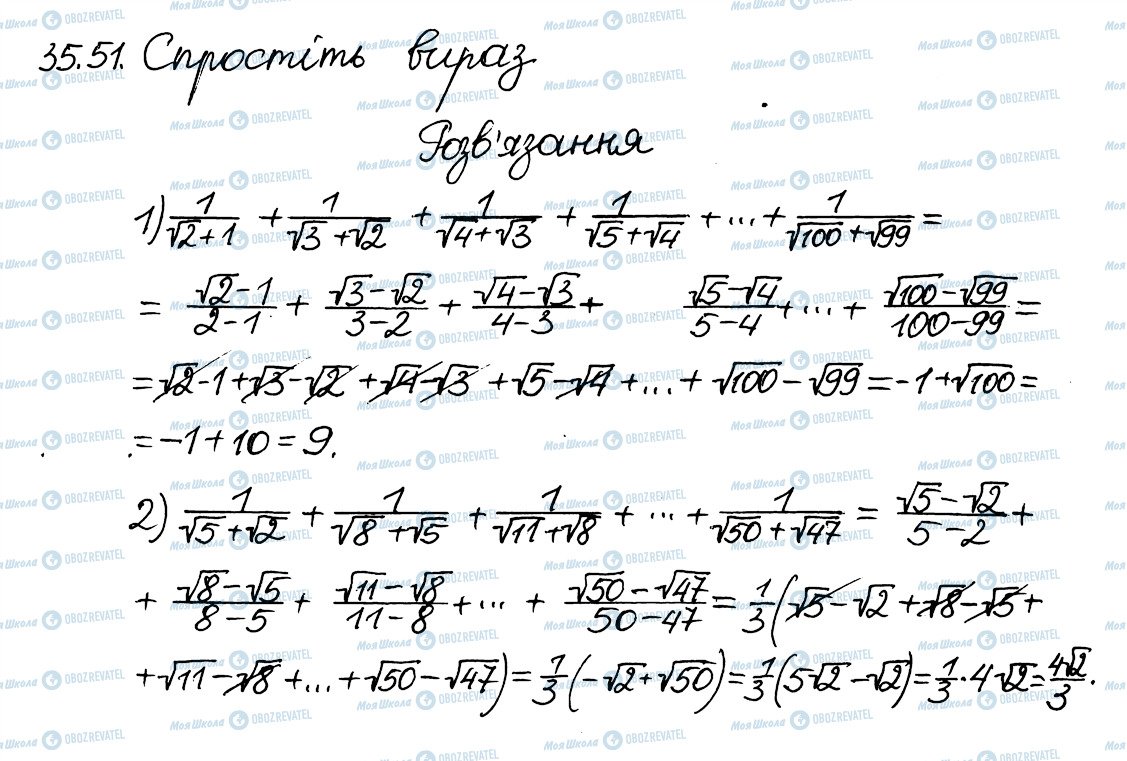 35.51. Спростіть вираз
Розв'язання
1) 1/(√2+1) + 1/(√3+√2) + 1/(√4+√3) + 1/(√5+√4) + ... + 1/(√100+√99) =
= (√2-1)/(2-1) + (√3-√2)/(3-2) + (√4-√3)/(4-3) + (√5-√4)/(5-4) + ... + (√100-√99)/(100-99) =
= √2-1+√3-√2+√4-√3+√5-√4+...+√100-√99=-1+√100=
=-1+10=9.
2) 1/(√5+√2) + 1/(√8+√5) + 1/(√11+√8) + ... + 1/(√50+√47) = (√5-√2)/(5-2) +
+ (√8-√5)/(8-5) + (√11-√8)/(11-8) + ... + (√50-√47)/(50-47) = 1/3(√5-√2+√8-√5+
+√11-√8+...+√50-√47)=1/3(-√2+√50)=1/3(5√2-√2)=1/3·4√2=4√2/3.
Моя Школа OBOZREVATEL